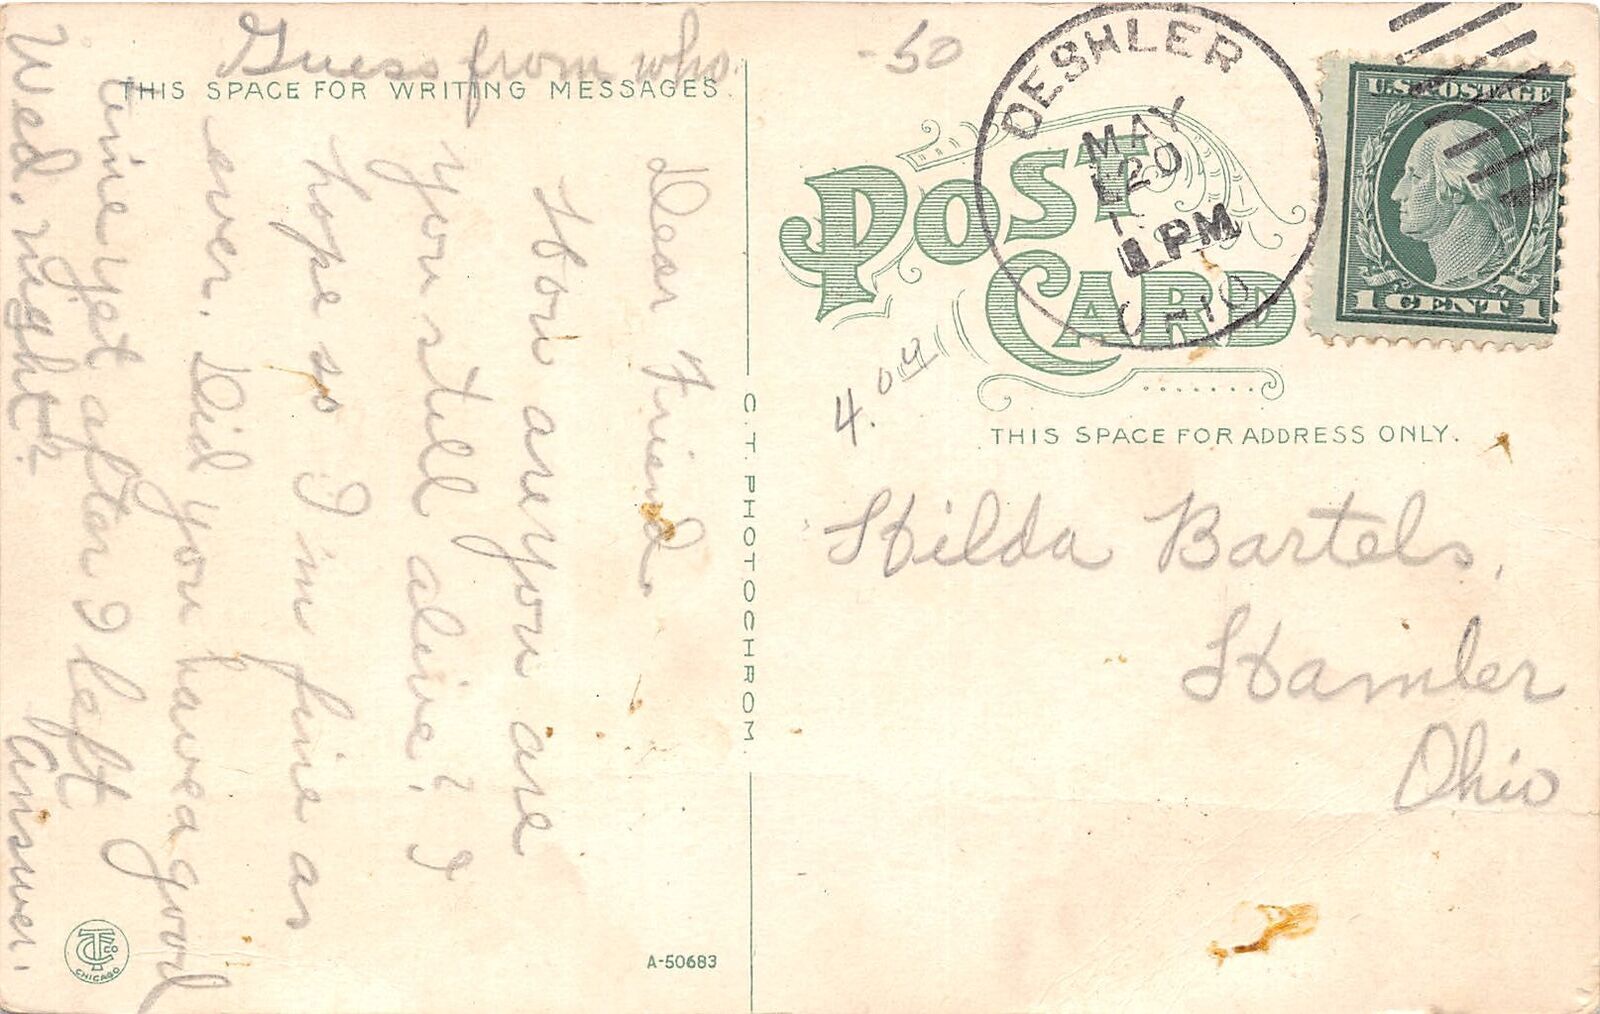 Guess from who
THIS SPACE FOR WRITING MESSAGES.
Dear Friend.
How are you are
you still alive? I
hope so I'm fine as
ever. Did you have a good
time yet after I left
Wed. night?
Answer.
C. T. PHOTOCHROM.
A-50683
CHICAGO
-50
4.04
POST
CARD
DESHLER
MAY
20
1 PM
OHIO
U.S. POSTAGE
1 CENT 1
THIS SPACE FOR ADDRESS ONLY.
Hilda Bartels,
Hamler
Ohio